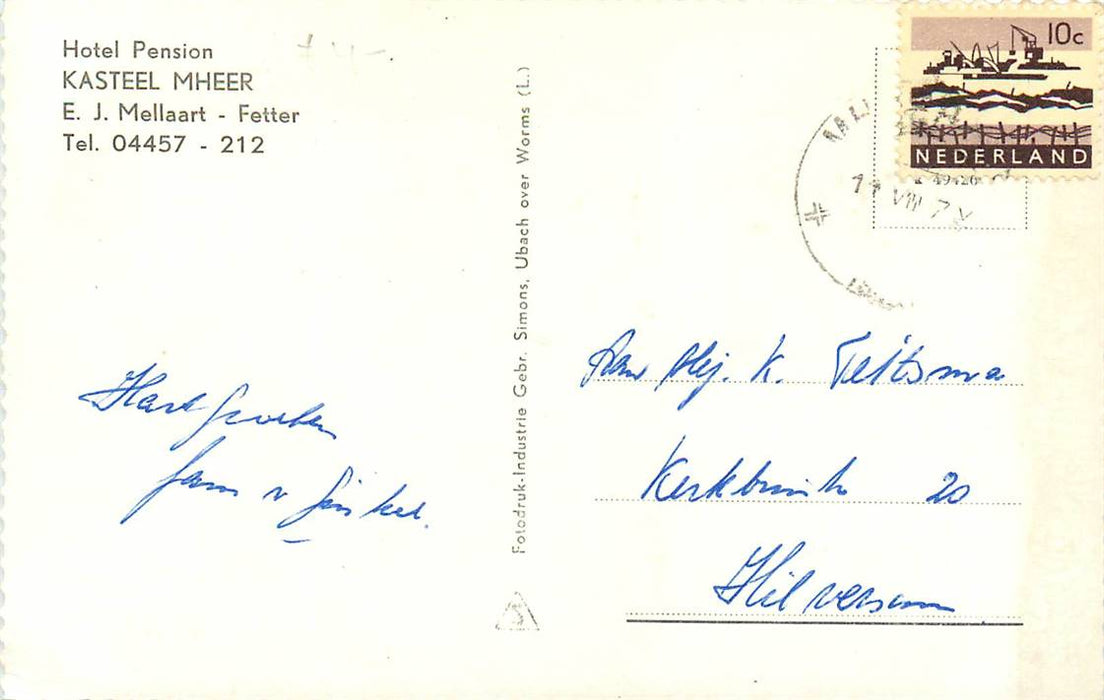 Hotel Pension
KASTEEL MHEER
E. J. Mellaart - Fetter
Tel. 04457 - 212
10c
NEDERLAND
49426
11 VIII 7
Fotodruk-Industrie Gebr. Simons, Ubach over Worms (L.)
Hart. groeten
fam v Ginkel.
Aan Mej. K. Feitsma
Kerkbrink 20
Hilversum